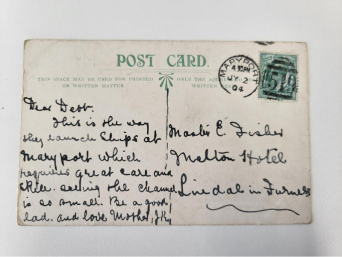 POST CARD.
THIS SPACE MAY BE USED FOR PRINTED
OR WRITTEN MATTER.
ONLY THE
WRITTEN
MARYPORT
JY 2
04
Dear
This is the way
they launch Ships at
Maryport which
requires great care and
skill. seeing the channel
is so small. Be a good
lad. and love Mother,
Master E. Fisher
Melton Hotel
Lindal in Furness